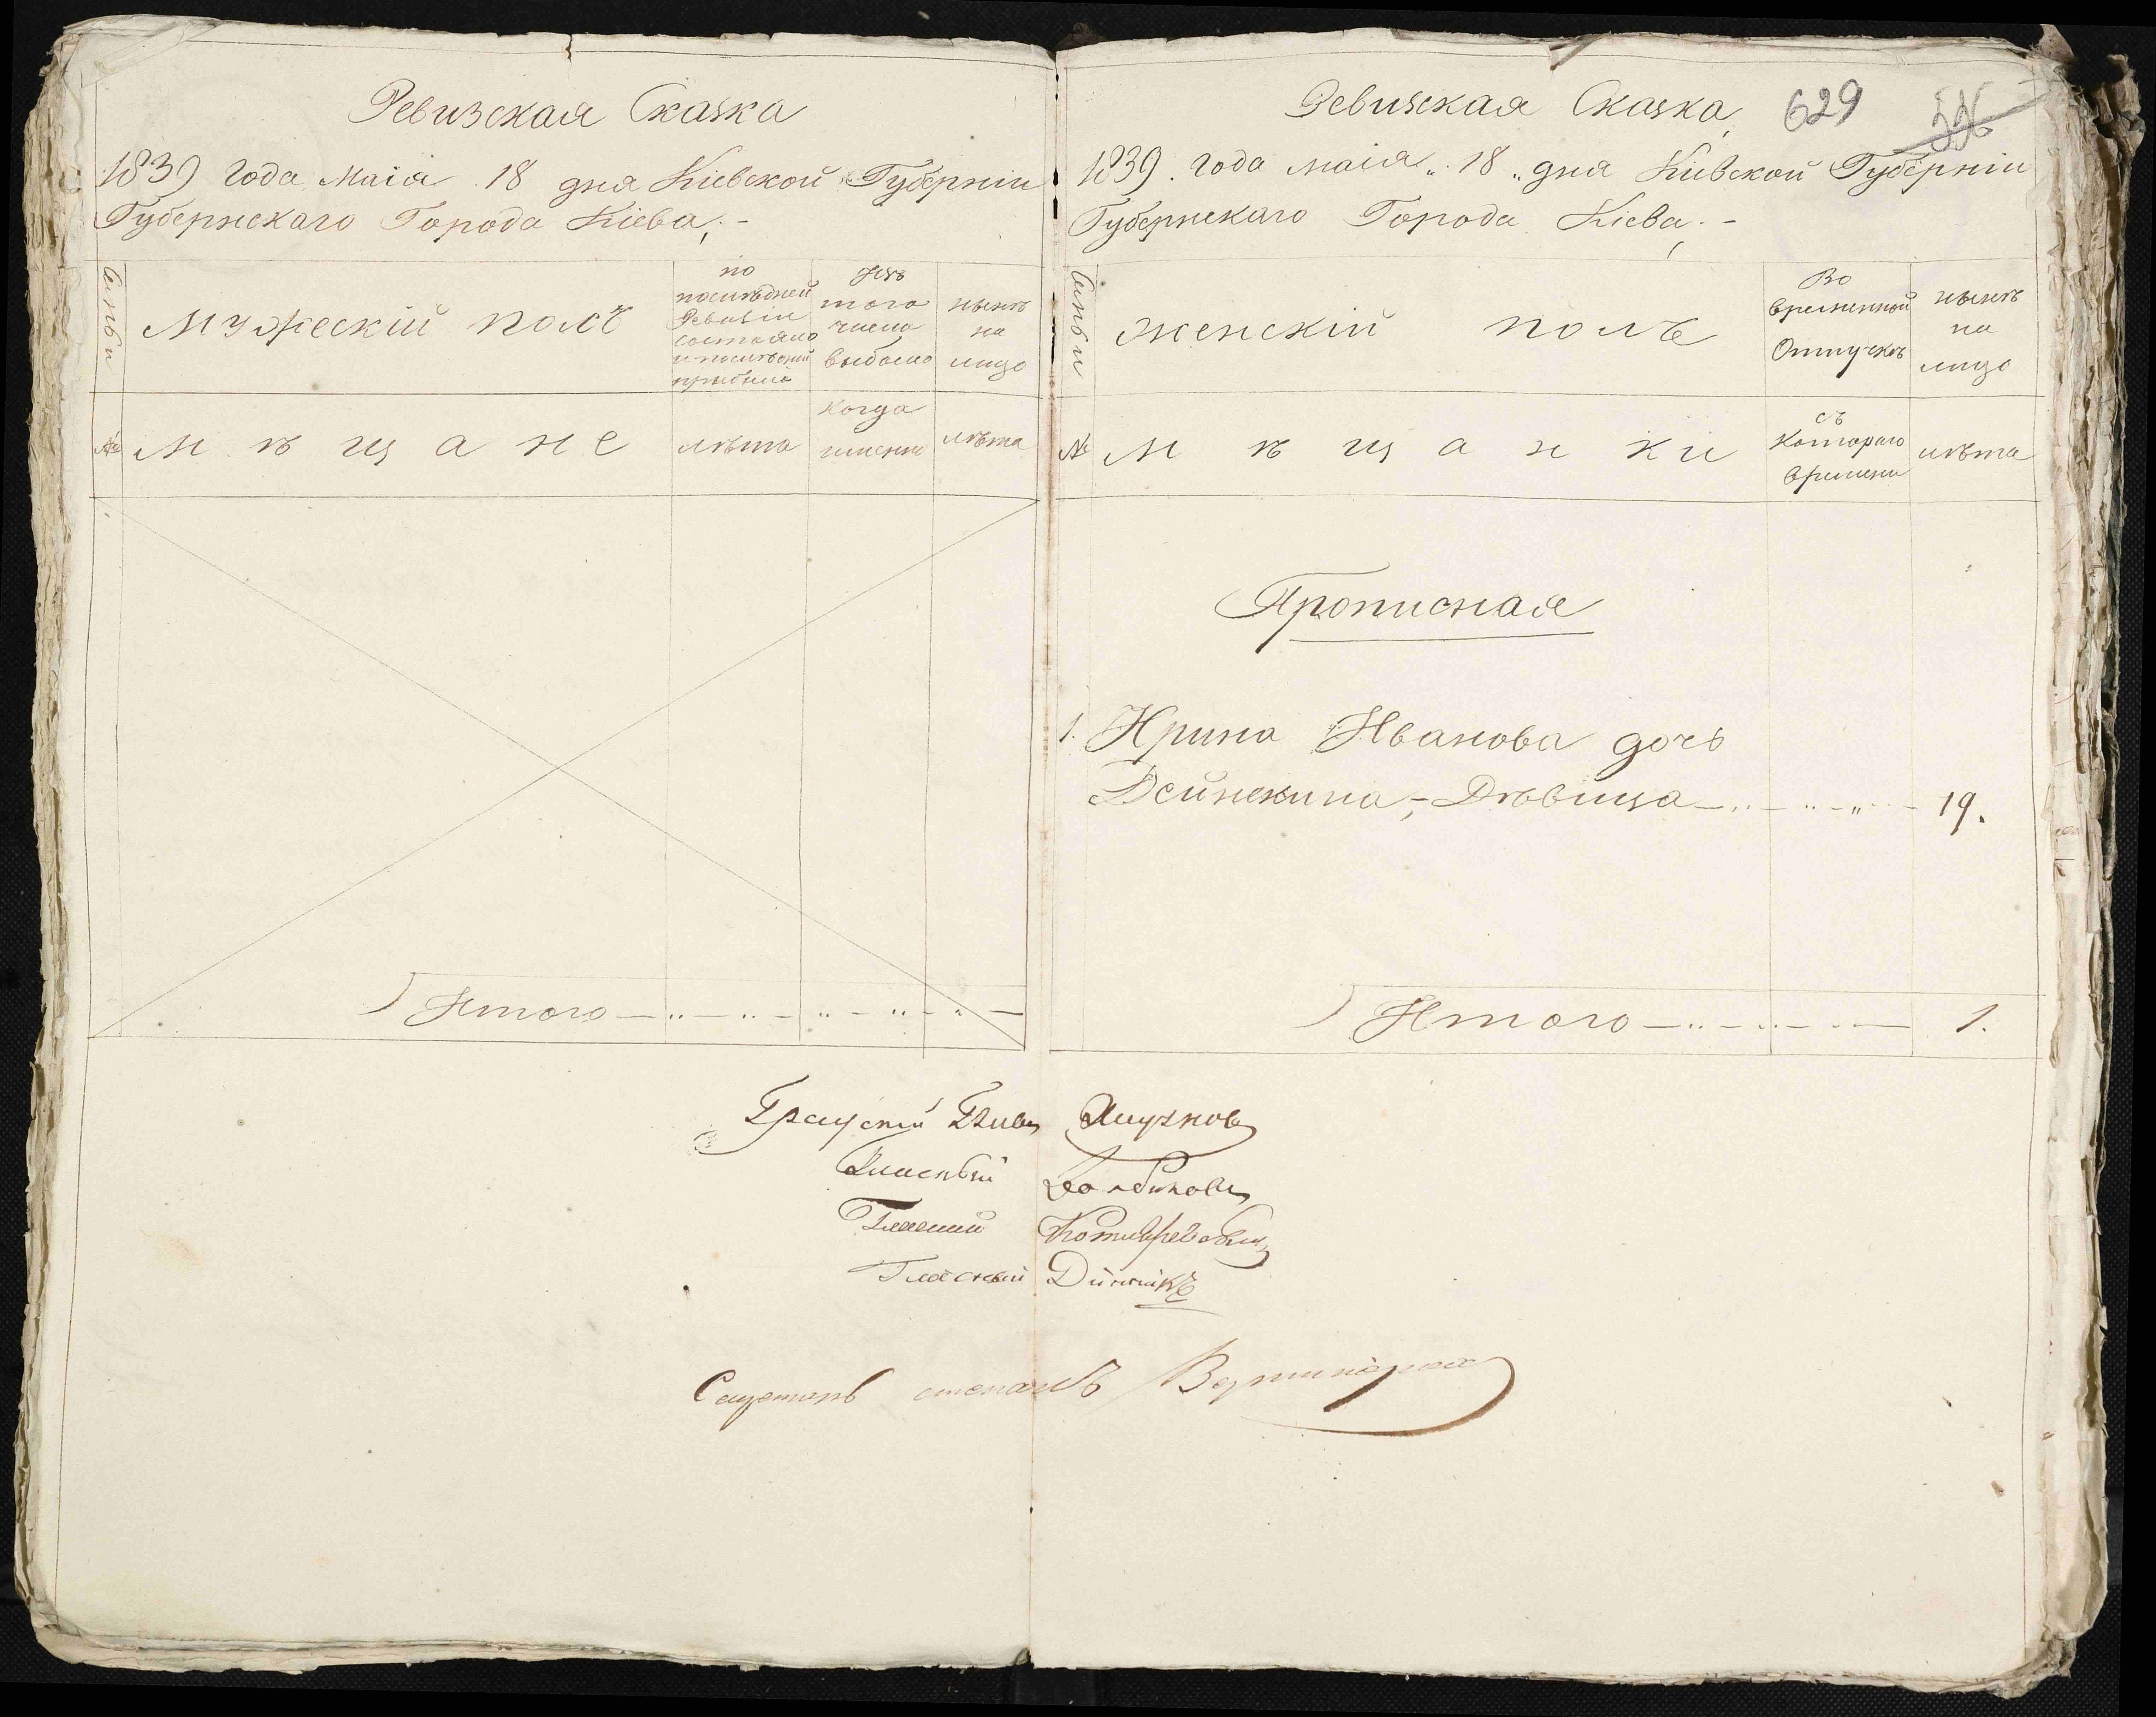 Ревизская Сказка
1839 года Маія 18 дня Кіевской Губерніи
Губернскаго Города Кіева,.-
Семьи
Мужескій полъ
по
послѣдней
Ревизіи
состояло
и послѣ оной
прибыло
Изъ
того
числа
выбыло
нынѣ
на
лицо
№
Мѣщане
лѣта
когда
именно
лѣта
Итого
Ревизская Сказка
629
1839. года маія „ 18 „ дня Кіевской Губерніи
Губернскаго Города Кіева,.-
Семьи
женскій полъ
Во
временной
Отлучкѣ
нынѣ
на
лицо
№
Мѣщанки
съ
котораго
времени
лѣта
Прописная
1. Ирина Иванова дочь
Дейнекина,- Дѣвица 19.
Итого 1.
Градскій Глава
Гласный
Гласный
Гласный Динникъ
степанъ